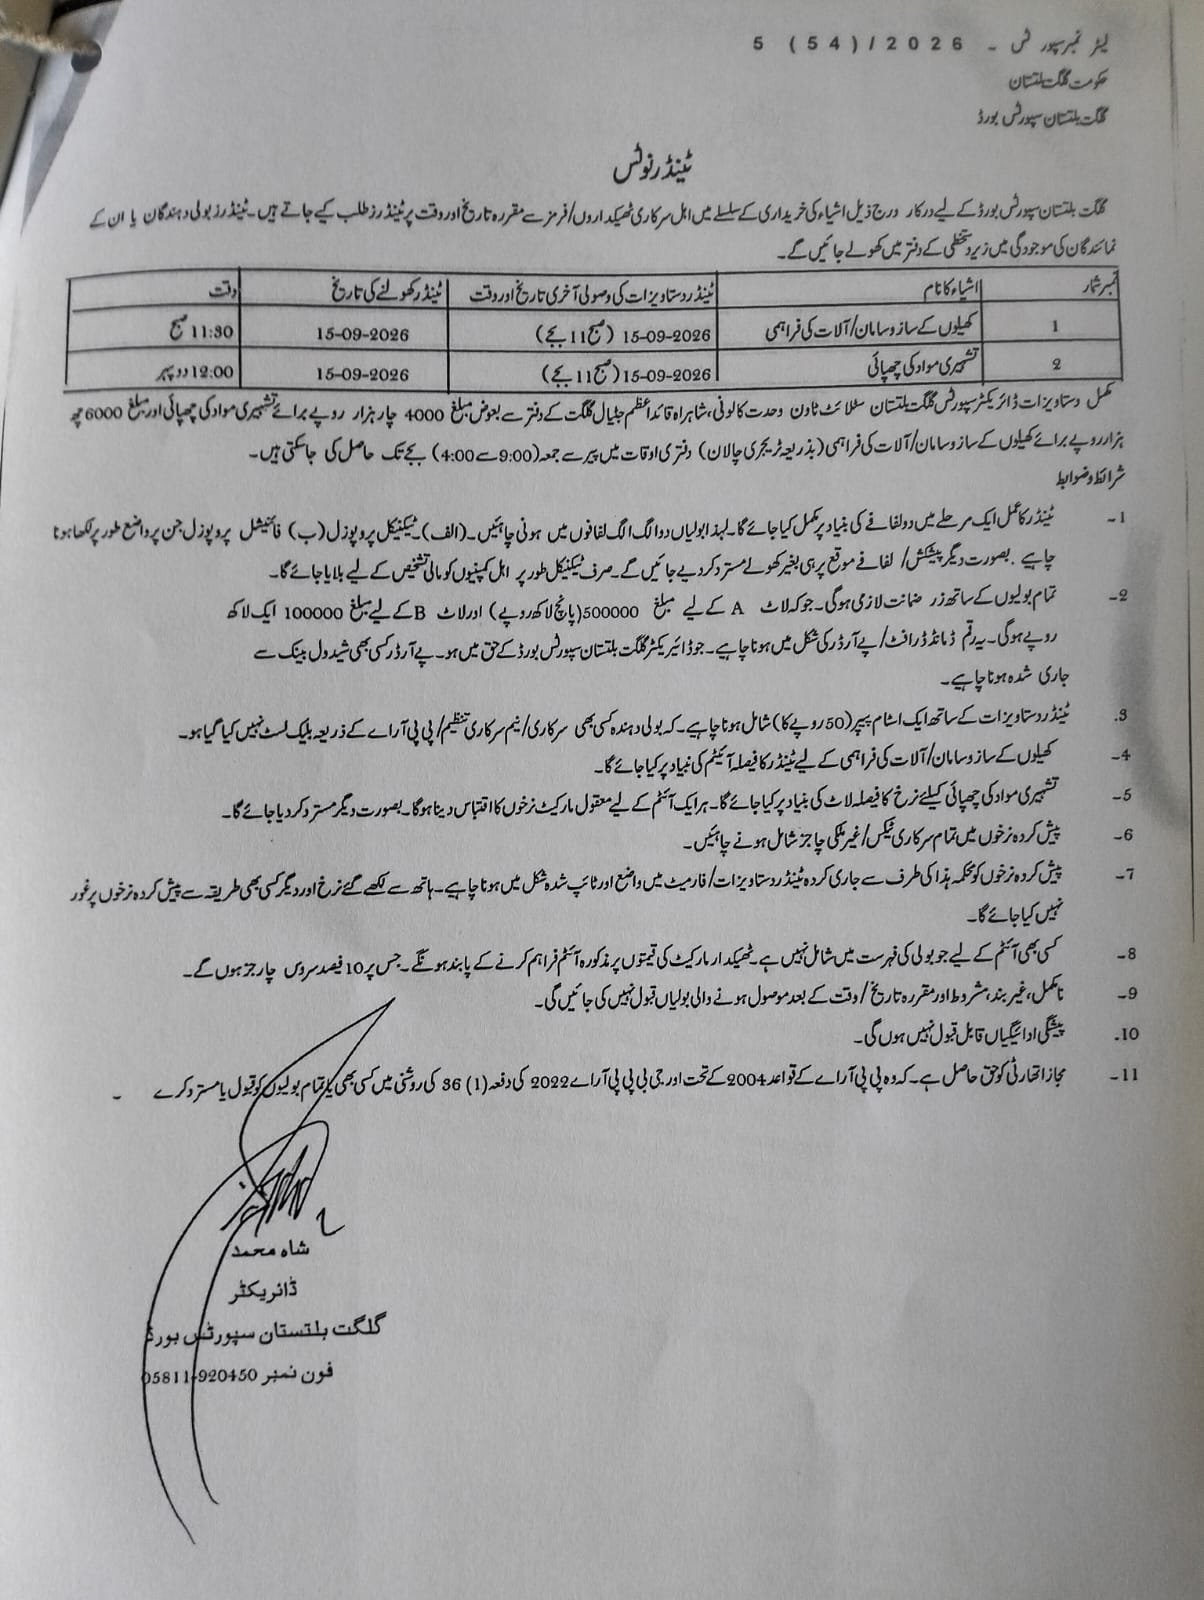 لیٹر نمبر سپورٹس ۔ 5 (54)/2026
حکومت گلگت بلتستان
گلگت بلتستان سپورٹس بورڈ
ٹینڈر نوٹس
گلگت بلتستان سپورٹس بورڈ کے لیے درکار درج ذیل اشیاء کی خریداری کے سلسلے میں اہل سرکاری ٹھیکداروں/فرمز سے مقررہ تاریخ اور وقت پر ٹینڈرز طلب کیے جاتے ہیں۔ ٹینڈرز بولی دہندگان یا ان کے
نمائندگان کی موجودگی میں زیر دستخطی کے دفتر میں کھولے جائیں گے۔
نمبر شمار | اشیاء کا نام | ٹینڈر دستاویزات کی وصولی آخری تاریخ اور وقت | ٹینڈر کھولنے کی تاریخ | وقت
1 | کھیلوں کے ساز و سامان/آلات کی فراہمی | 15-09-2026 (صبح 11 بجے) | 15-09-2026 | 11:30 صبح
2 | تشہیری مواد کی چھپائی | 15-09-2026 (صبح 11 بجے) | 15-09-2026 | 12:00 دوپہر
مکمل دستاویزات ڈائریکٹر سپورٹس گلگت بلتستان سٹلائٹ ٹاون وحدت کالونی، شاہراہ قائد اعظم جٹیال گلگت کے دفتر سے بعوض مبلغ 4000 چار ہزار روپے برائے تشہیری مواد کی چھپائی اور مبلغ 6000 چھ
ہزار روپے برائے کھیلوں کے ساز و سامان/آلات کی فراہمی (بذریعہ ٹریجری چالان) دفتری اوقات میں پیر سے جمعہ (9:00 سے 4:00) بجے تک حاصل کی جاسکتی ہیں۔
شرائط و ضوابط
1۔ ٹینڈر کا عمل ایک مرحلے میں دو لفافے کی بنیاد پر مکمل کیا جائے گا۔ لہذا بولیاں دو الگ الگ لفافوں میں ہونی چاہئیں۔ (الف)۔ ٹیکنیکل پروپوزل (ب) فائنیشل پروپوزل جن پر واضع طور پر لکھا ہونا
چاہیے۔ بصورت دیگر پیشکش/لفافے موقع پر ہی بغیر کھولے مسترد کر دیے جائیں گے۔ صرف ٹیکنیکل طور پر اہل کمپنیوں کو مالی تشخیص کے لیے بلایا جائے گا۔
2۔ تمام بولیوں کے ساتھ زر ضمانت لازمی ہوگی۔ جو کہ لاٹ A کے لیے مبلغ 500000 (پانچ لاکھ روپے) اور لاٹ B کے لیے مبلغ 100000 ایک لاکھ
روپے ہوگی۔ یہ رقم ڈمانڈ ڈرافٹ/پے آرڈر کی شکل میں ہونا چاہیے۔ جو ڈائریکٹر گلگت بلتستان سپورٹس بورڈ کے حق میں ہو۔ پے آرڈر کسی بھی شیدول بینک سے
جاری شدہ ہونا چاہیے۔
3. ٹینڈر دستاویزات کے ساتھ ایک اشٹام پیپر (50 روپے کا) شامل ہونا چاہیے۔ کہ بولی دہندہ کسی بھی سرکاری/نیم سرکاری تنظیم/پی پی آر اے کے ذریعہ بلیک لسٹ نہیں کیا گیا ہو۔
4۔ کھیلوں کے ساز و سامان/آلات کی فراہمی کے لیے ٹینڈر کا فیصلہ آئیٹم کی بنیاد پر کیا جائے گا۔
5۔ تشہیری مواد کی چھپائی کیلئے نرخ کا فیصلہ لاٹ کی بنیاد پر کیا جائے گا۔ ہر ایک آئٹم کے لیے معقول مارکیٹ نرخوں کا اقتباس دینا ہوگا۔ بصورت دیگر مسترد کر دیا جائے گا۔
6۔ پیش کردہ نرخوں میں تمام سرکاری ٹیکس/غیر ملکی چارجز شامل ہونے چاہئیں۔
7۔ پیش کردہ نرخوں کو محکمہ ہذا کی طرف سے جاری کردہ ٹینڈر دستاویزات/فارمیٹ میں واضع اور ٹائپ شدہ شکل میں ہونا چاہیے۔ ہاتھ سے لکھے گئے نرخ اور دیگر کسی بھی طریقہ سے پیش کردہ نرخوں پر غور
نہیں کیا جائے گا۔
8۔ کسی بھی آئٹم کے لیے جو بولی کی فہرست میں شامل نہیں ہے۔ ٹھیکدار مارکیٹ کی قیمتوں پر مذکورہ آئٹم فراہم کرنے کے پابند ہونگے۔ جس پر 10 فیصد سروس چارجز ہوں گے۔
9۔ نامکمل، غیر بند، مشروط اور مقررہ تاریخ/وقت کے بعد موصول ہونے والی بولیاں قبول نہیں کی جائیں گی۔
10۔ پیشگی ادائیگیاں قابل قبول نہیں ہوں گی۔
11۔ مجاز اتھارٹی کو حق حاصل ہے۔ کہ وہ پی پی آر اے کے قواعد 2004 کے تحت اور جی بی پی پی آر اے 2022 کی دفعہ (1) 36 کی روشنی میں کسی بھی یا تمام بولیوں کو قبول یا مسترد کرے ۔
شاہ محمد
ڈائریکٹر
گلگت بلتستان سپورٹس بورڈ
فون نمبر 05811-920450